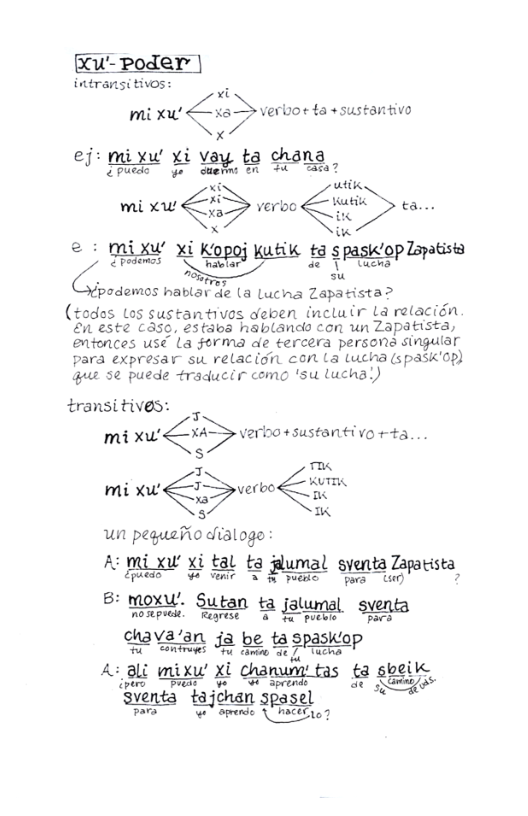 xu'- poder
intransitivos:
xi
mi xu' xa verbo + ta + sustantivo
x
ej: mi xu' xi vay ta chana
¿puedo yo duermo en tu casa?
xi utik
mi xu' xi verbo kutik ta...
xa ik
x ik
e : mi xu' xi k'opoj kutik ta spask'op Zapatista
¿podemos hablar de su lucha
nosotros
¿podemos hablar de la lucha Zapatista?
(todos los sustantivos deben incluir la relación.
En este caso, estaba hablando con un Zapatista,
entonces usé la forma de tercera persona singular
para expresar su relación con la lucha (spask'op)
que se puede traducir como 'su lucha'.)
transitivos:
J
mi xu' XA verbo + sustantivo + ta...
S
J TIK
mi xu' J verbo KUTIK
xa IK
S IK
un pequeño dialogo:
A: mi xu' xi tal ta jalumal sventa Zapatista
¿puedo yo venir a tu pueblo para (ser) ?
B: moxu'. Sutan ta jalumal sventa
no se puede. Regrese a tu pueblo para
chava'an ja be ta spask'op
tu contruyes tu camino de tu lucha
A: ali mi xu' xi chanum'tas ta sbeik
¿pero puedo yo aprendo de su camino de uds.
sventa tajchan spasel
para yo aprendo hacerlo?